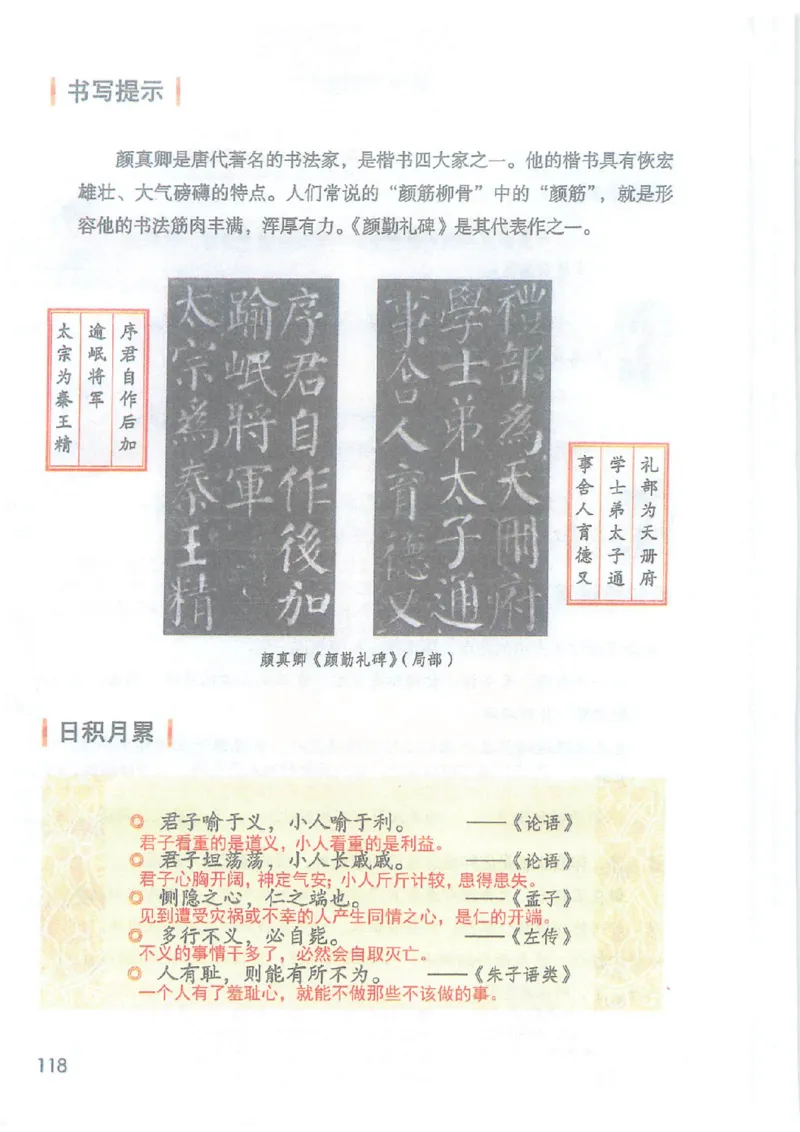 书写提示
颜真卿是唐代著名的书法家，是楷书四大家之一。他的楷书具有恢宏
雄壮、大气磅礴的特点。人们常说的“颜筋柳骨”中的“颜筋”，就是形
容他的书法筋肉丰满，浑厚有力。《颜勤礼碑》是其代表作之一。
序君自作后加
逾岷将军
太宗为秦王精
序君自作後加
踰岷將軍
太宗為秦王精
禮部為天冊府
學士弟太子通
事舍人育德又
礼部为天册府
学士弟太子通
事舍人育德又
颜真卿《颜勤礼碑》（局部）
日积月累
君子喻于义，小人喻于利。 ——《论语》
君子看重的是道义，小人看重的是利益。
君子坦荡荡，小人长戚戚。 ——《论语》
君子心胸开阔，神定气安；小人斤斤计较，患得患失。
恻隐之心，仁之端也。 ——《孟子》
见到遭受灾祸或不幸的人产生同情之心，是仁的开端。
多行不义，必自毙。 ——《左传》
不义的事情干多了，必然会自取灭亡。
人有耻，则能有所不为。 ——《朱子语类》
一个人有了羞耻心，就能不做那些不该做的事。
118